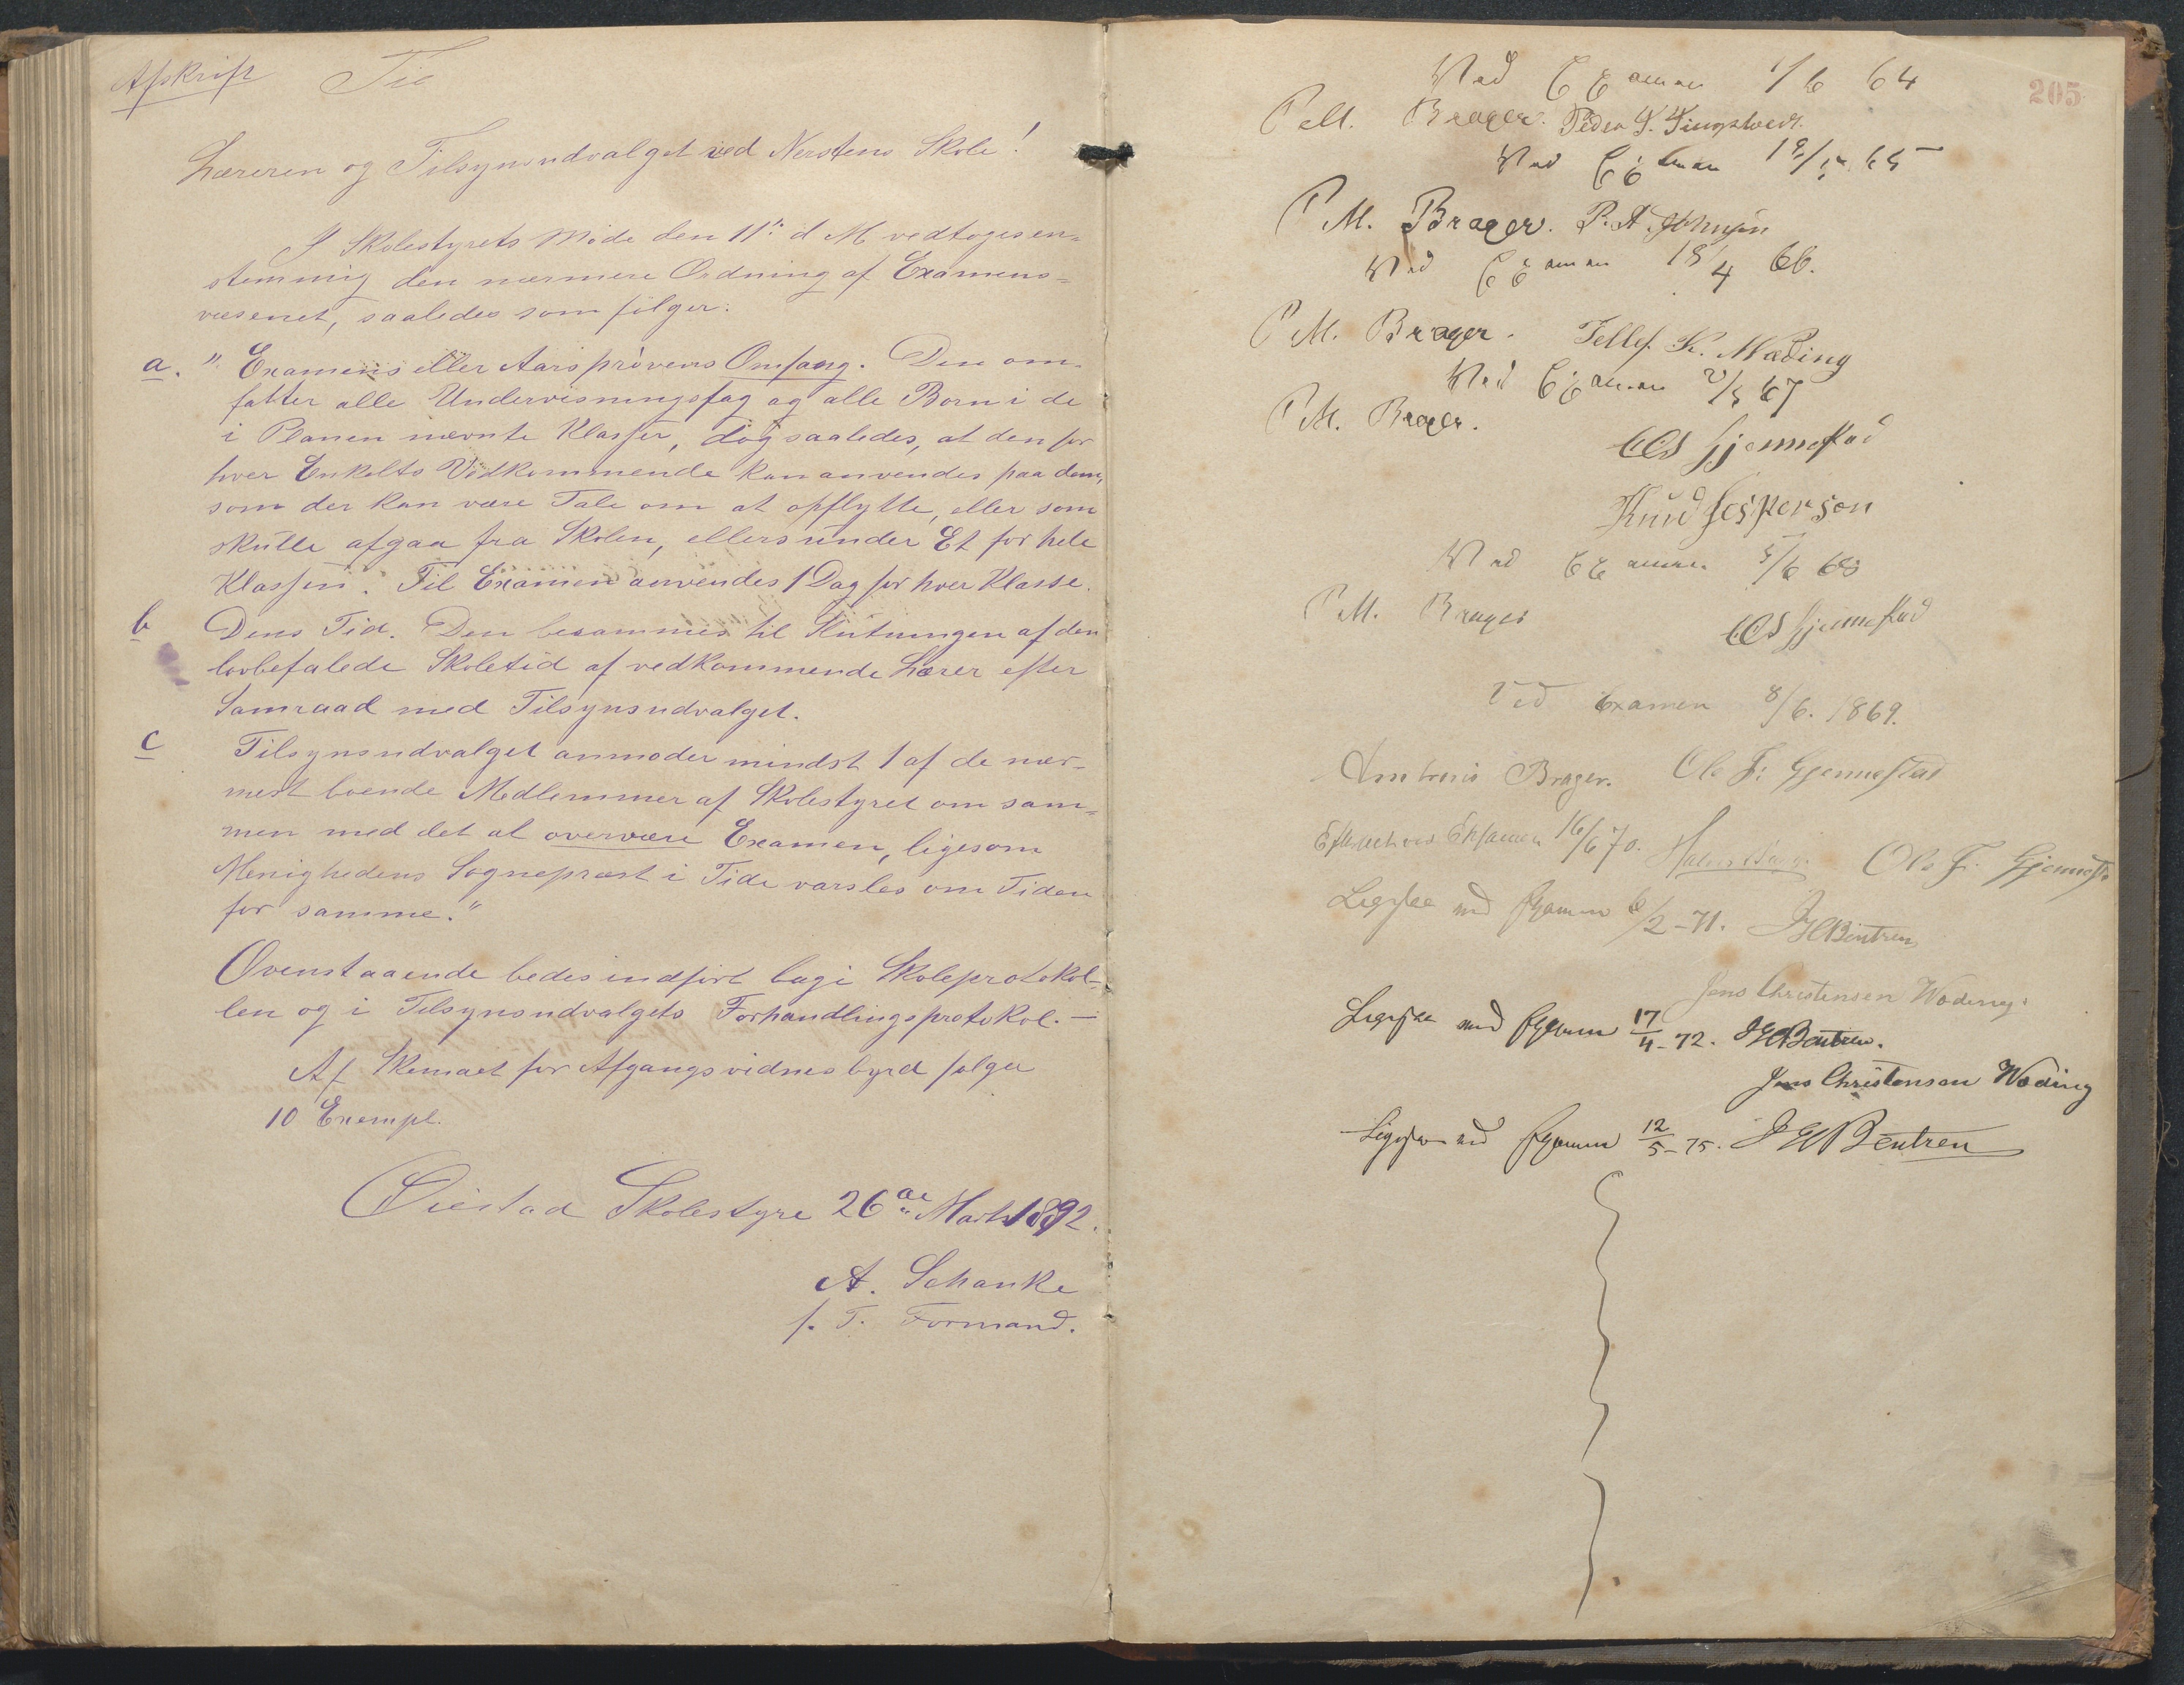 Afskrift Til
Læreren og Tilsynsudvalget ved Nerstens Skole!
I Skolestyrets Møde den 11te d M vedtoges en-
stemmig den nærmere Ordning af Examens-
væsenet, saaledes som følger:
a. "Examens eller Aarsprøvens Omfang. Den om-
fatter alle Undervisningsfag og alle Børn i de
i Planen nævnte Klasser, dog saaledes, at den for
hver Enkelts Vedkommende kan anvendes paa dem,
som der kan være Tale om at opflytte, eller som
skulle afgaa fra Skolen, ellers under Et for hele
Klassen. Til Examen anvendes 1 Dag for hver Klasse.
b Dens Tid. Den berammes til Slutningen af den
lovbefalede Skoletid af vedkommende Lærer efter
Samraad med Tilsynsudvalget.
c Tilsynsudvalget anmoder mindst 1 af de nær-
mest boende Medlemmer af Skolestyret om sam-
men med det at overvære Examen, ligesom
Menighedens Sogneprest i Tide varsles om Tiden
for samme."
Ovenstaaende bedes indført bag i Skoleprotokol-
len og i Tilsynsudvalgets Forhandlingsprotokol. —
Af Skemaet for Afgangsvidnesbyrd følger
10 Exempl.
Øiestad Skolestyre 26de Marts 1892.
A. Schanke
p. T. Formand.
205
Ved Examen 1/6 64
P M. Brager. Peder
Ved Examen 65
P M. Brager. P. A. Johnsen
Ved Examen 18/4 66.
P M. Brager. Tellef K. Wæding
Ved Examen 2/5 67
P M. Brager.
Ole Gjennestad
Knud Jesperson
Ved Examen 5/6 68
P M. Brager Ole Gjennestad
Ved Examen 8/6. 1869.
Brager. Ole F. Gjennestad
Efterseet ved Exsamen 16/6 70. Ole F. Gjennesta
Ligesaa ved Examen 6/2-71. J H Bentzen
Jens Christensen Wæding.
Ligesaa ved Examen 17/4-72. J H Bentzen.
Jens Christensen Wæding
Ligesaa ved Examen 12/5-75. J H Bentzen